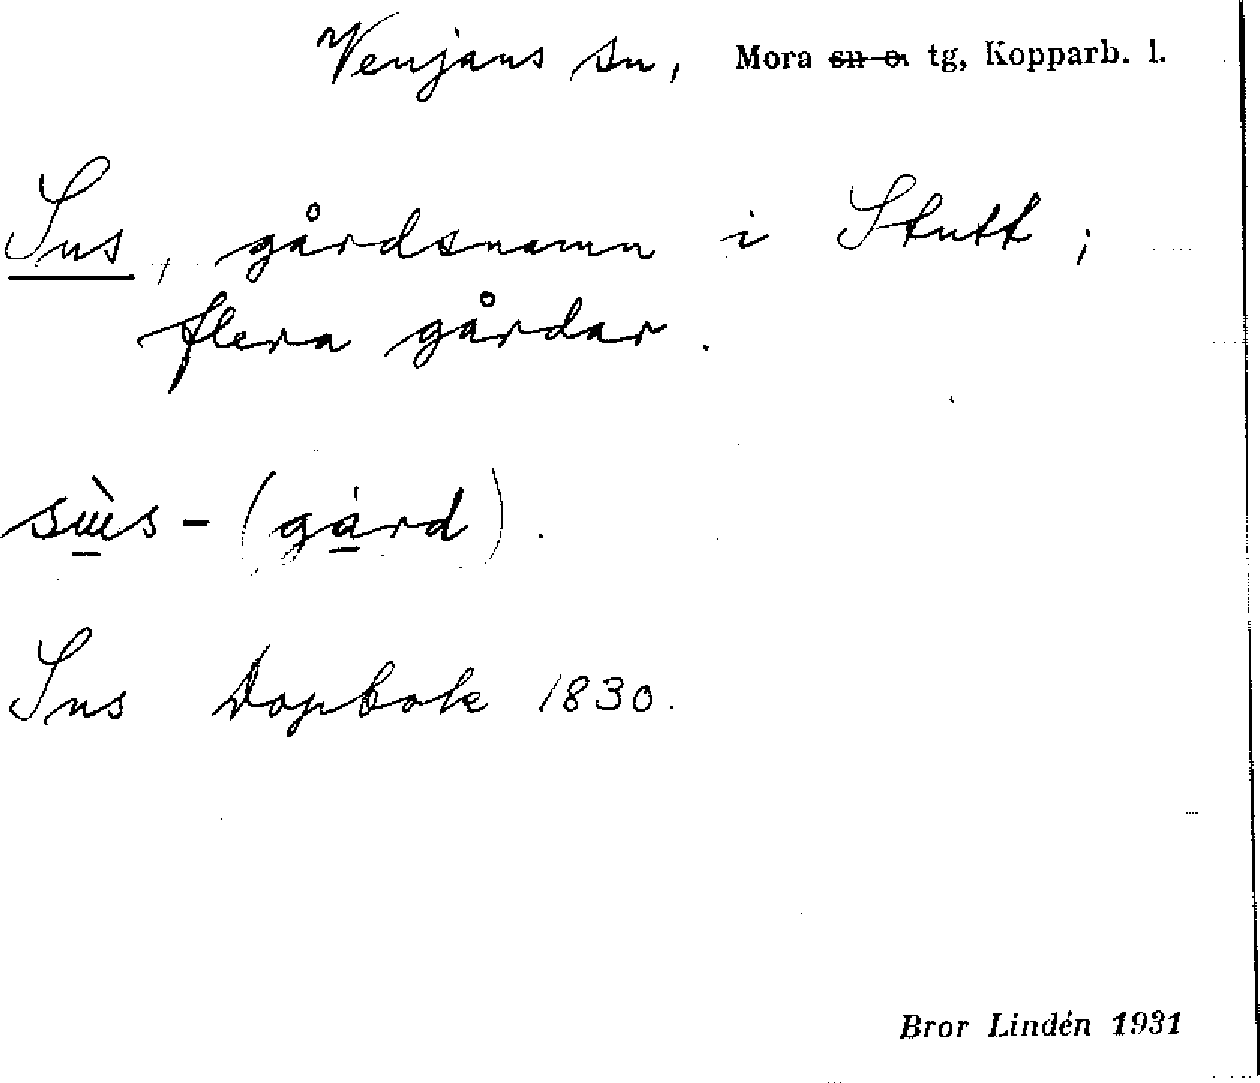 Venjans sn, Mora sn o. tg, Kopparb. l.
Sus, gårdsnamn i Stutt;
flera gårdar.
sùs - (gård).
Sus Dopbok 1830.
Bror Lindén 1931